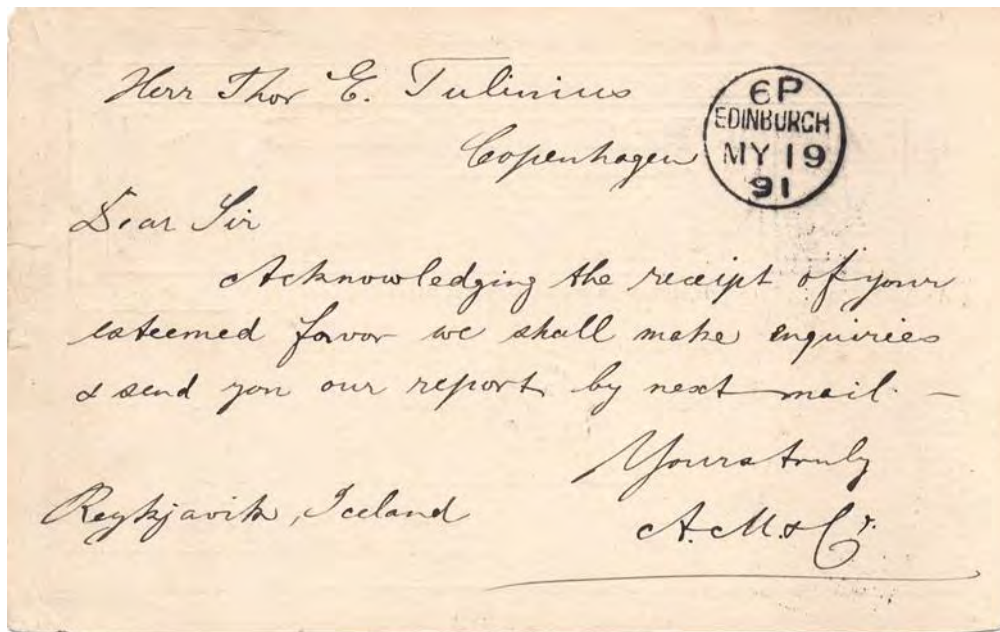 Herr Thor E. Tulinius
Copenhagen
6P
EDINBURGH
MY 19
91
Dear Sir
Acknowledging the receipt of your
esteemed favor we shall make enquiries
& send you our report by next mail. —
Yours truly
Reykjavik, Iceland
A. M. & Co.